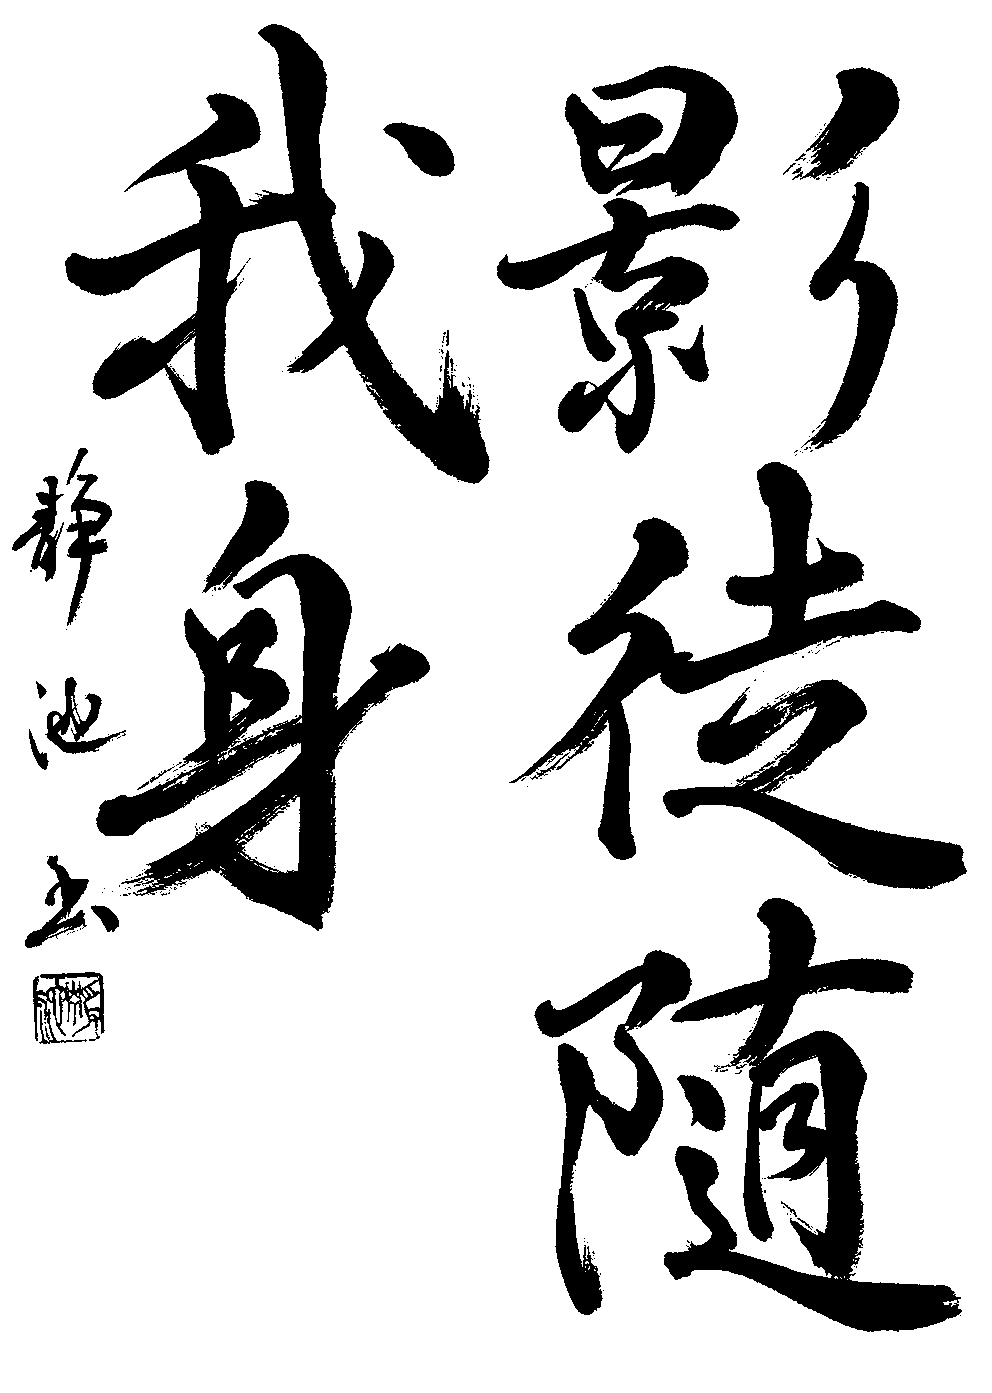 影徒随
我身
静池书